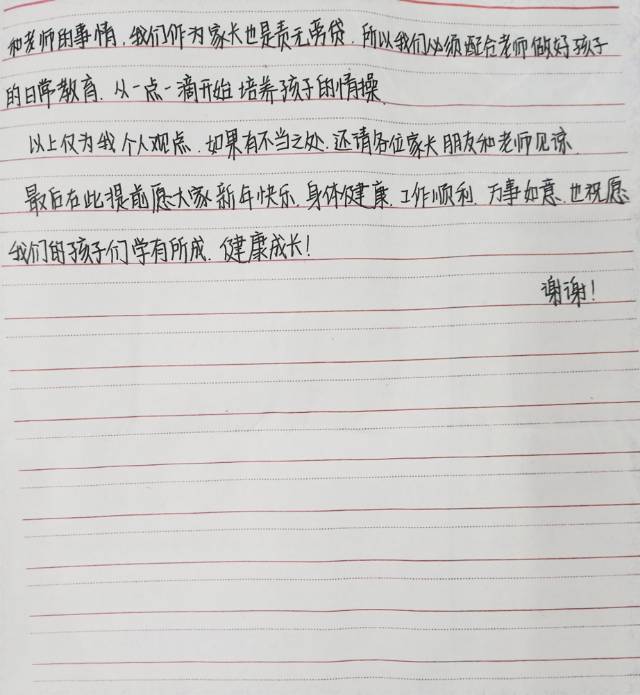 和老师的事情,我们作为家长也是责无旁贷,所以我们必须配合老师做好孩子
的日常教育.从一点一滴开始培养孩子的情操.
以上仅为我个人观点.如果有不当之处.还请各位家长朋友和老师见谅.
最后在此提前愿大家新年快乐.身体健康.工作顺利.万事如意.也祝愿
我们的孩子们学有所成.健康成长!
谢谢!